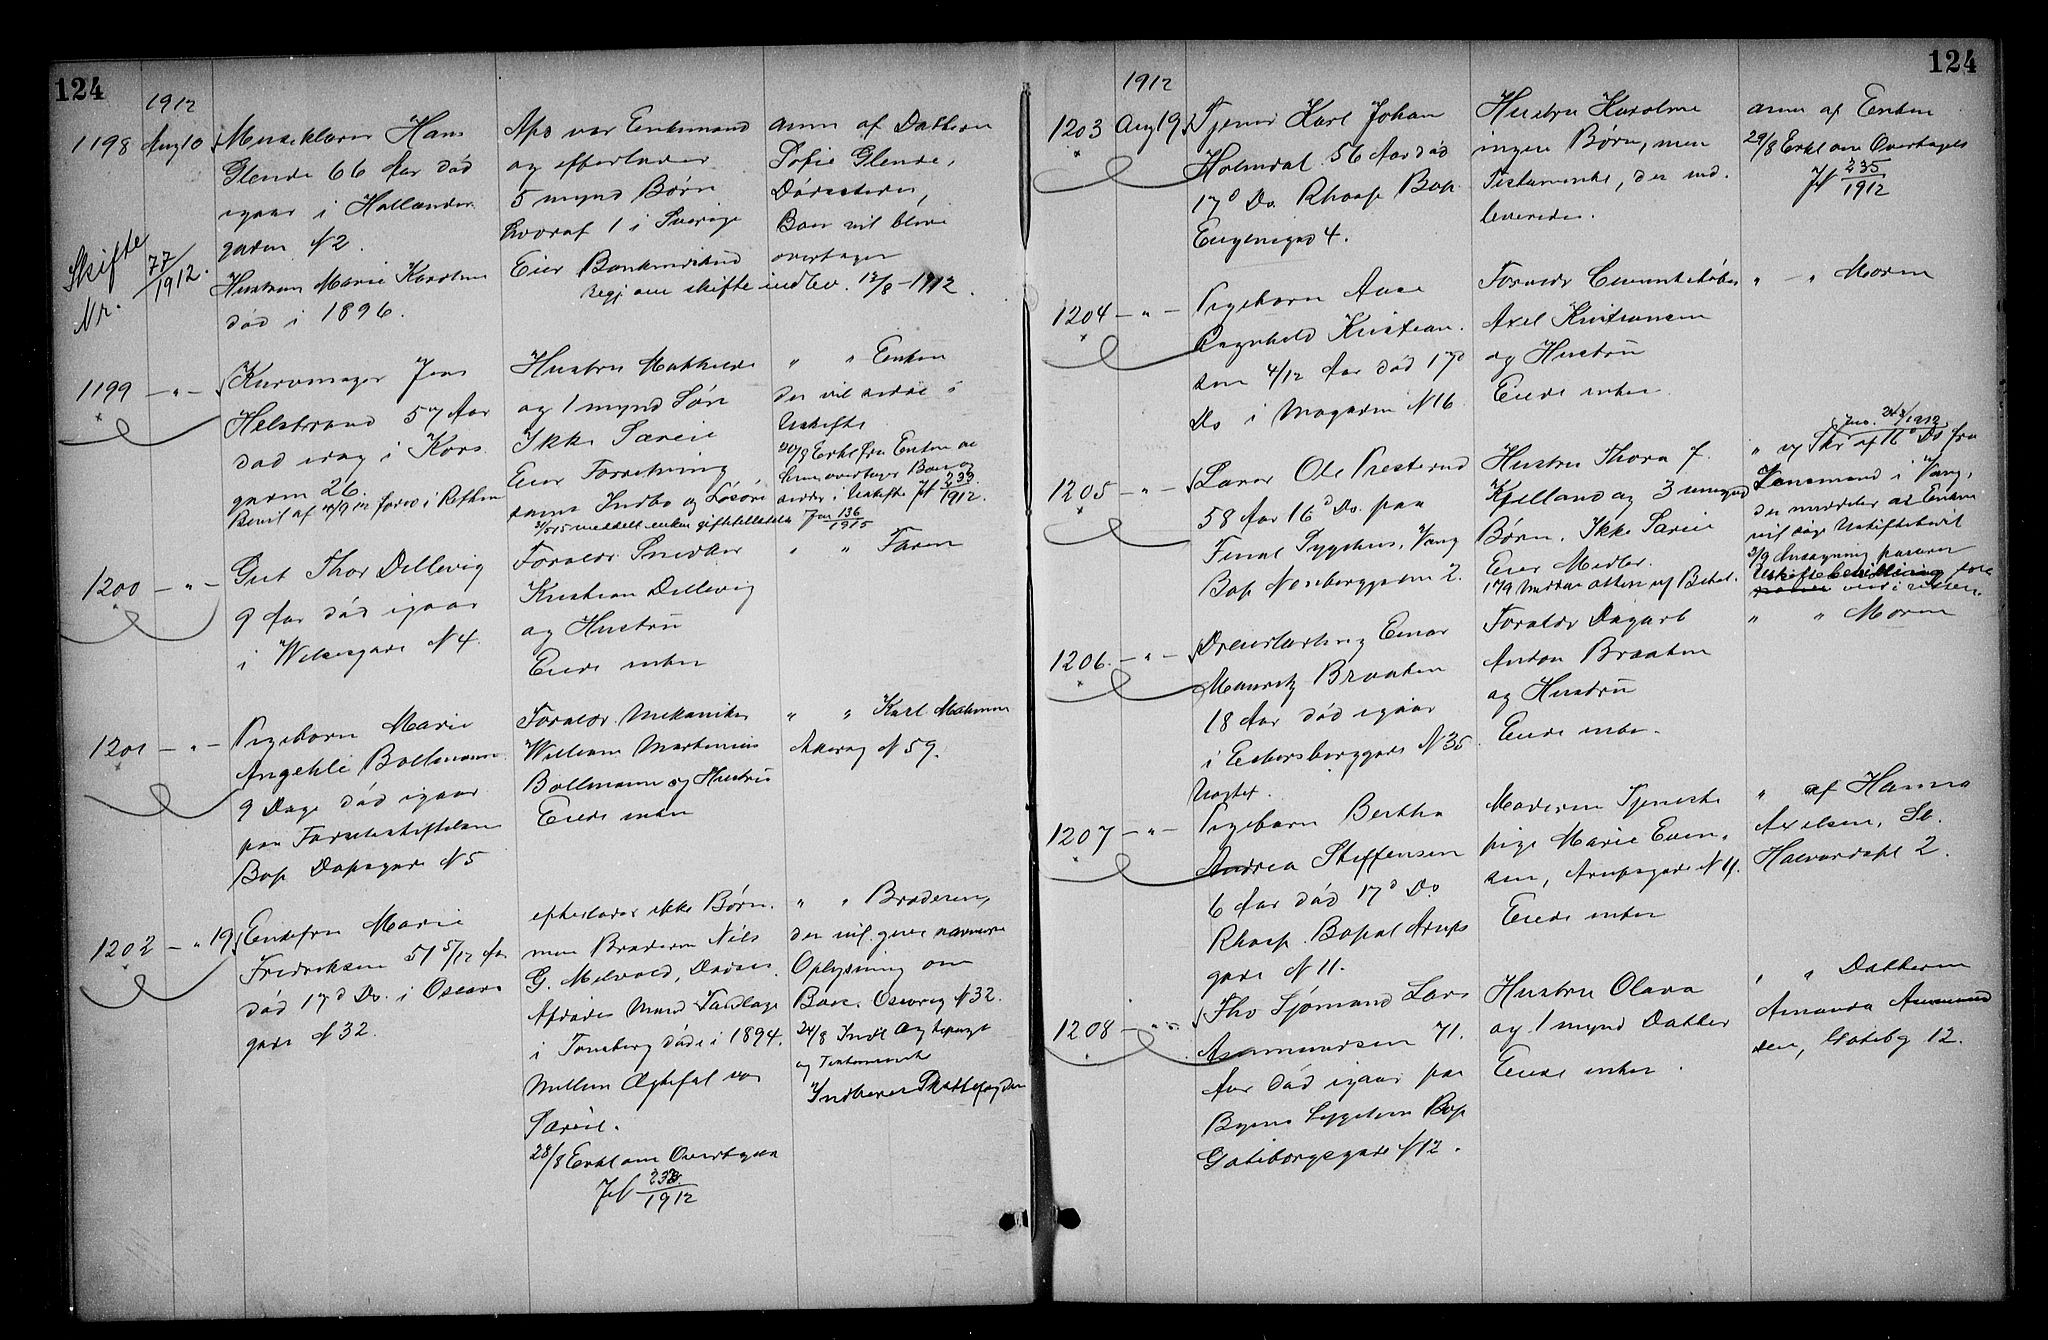 124
1912
1198 Aug 10 Musiklærer Hans
Glende 66 Aar død
igaar i Hollænder
gaden N 2.
Hustruen Marie Karoline
død i 1896.
Skifte
Nr. 77/1912.
Afd var Enkemand
og efterlader
5 mynd Børn
hvoraf 1 i Sverige
Eier
Begj om skifte indlev. 12/8 - 1912.
anm af Datteren
Sofie Glende,
Dødsstedet,
Boet vil blive
overtaget
1199 - " - Kurvmager Jens
Helstrand 57 Aar
død idag i Kors
gaden 26.
Hustru Mathilde
og 1 mynd Søn
Ikke Særeie
Eier Forretning
samt Indbo og Løsøre
" " Enken
der vil sidde i
Uskifte
20/8 Erkl fra Enken at
hun overtager Boet og
sidder i Uskifte Jf 233/1912.
Jnr 136/1915
1200 - " - Gut Thor Dellevig
9 Aar død igaar
i Wilsesgade N 4.
Forældr Snedker
Kristian Dellevig
og Hustru
Eiede intet
" " Faren
1201 - " - Pigebarn Marie
Bollmann
9 Dage død igaar
paa Fødselsstiftelsen
Bop Dopsgade N 5
Forældr Mekaniker
William Martinius
Bollmann og Hustru
Eiede intet
" " Karl
Akersvg N 59.
1202 - " 19 Enkefru Marie
Fredriksen 51 5/12 Aar
død 17d Ds. i Oscars
gade N 32.
efterlader ikke Børn.
men Broderen Nils
G. Melvold,
Afdødes Mand Tandlæge
i Tønsberg døde i 1894.
Mellem Ægtefol var
Særeie.
28/8 Erkl om Overtagelse
Jf 238/1912
" " Broderen,
der vil give nærmere
Oplysning om
Boet. Oscarsg N 32.
24/8 Indl Ægtepagt
og Testamente
124
1912
1203 Aug 19 Tjener Karl Johan
Holmdal 56 Aar død
17d Ds. Rhosp Bop.
Eugeniegad 4.
Hustru Karoline
ingen Børn, men
Testamente, der ind
leveredes.
anm af Enken
29/8 Erkl om Overtagelse
Jf 235/1912
1204 - " - Pigebarn Aase
Ragnhild Kristian
sen 4/12 Aar død 17d
Ds i Møgaden N 16
Forældr
Axel Kristiansen
og Hustru
Eiede intet
" - " Moren
1205 - " - Lærer Ole Presterud
58 Aar 16d Ds. paa
Sygehus, Vang
Bop Nordberggaden 2.
Hustru Thora f.
Kjelland og 3 umynd
Børn. Ikke Særeie
Eier Midler.
" og Skr af 17d Ds fra
Lensmand i Vang,
der meddeler at Enken
vil søge Uskiftebevil
1206. - " - Dreierlærling Einar
Mauritz Braaten
18 Aar død igaar
i Eckersberggade N 35
Ugift.
Forældr Dagarb
Anton Braaten
og Hustru
Eiede intet.
" " Moren
1207 - " - Pigebarn Bertha
Andrea Steffensen
6 Aar død 17d Ds
Rhosp. Bopæl Arups
gade N 11.
Moderen Tjeneste
pige Marie Even,
sen, Arupsgade N 11.
Eiede intet
" af Hanna
Axelsen, St.
Halvardspl 2.
1208 - " - Fhv Sjømand Lars
Asmundsen 71.
Aar død igaar paa
Byens Sygehus Bop
Gøteborgsgade N 12.
Hustru Olava
og 1 mynd Datter
Eiede intet.
" " Datteren
Amanda Asmund
sen, Gøtebg 12.